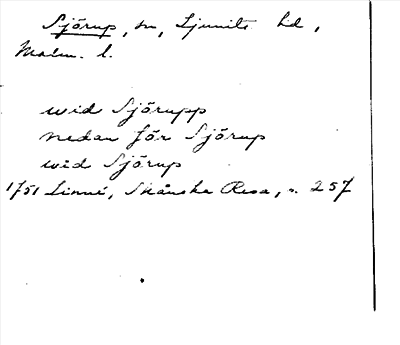 Sjörup, sn, Ljunits hd,
Malm. l.
wid Sjörupp
nedan för Sjörup
wid Sjörup
1751 Linné, Skånska Resa, s. 257